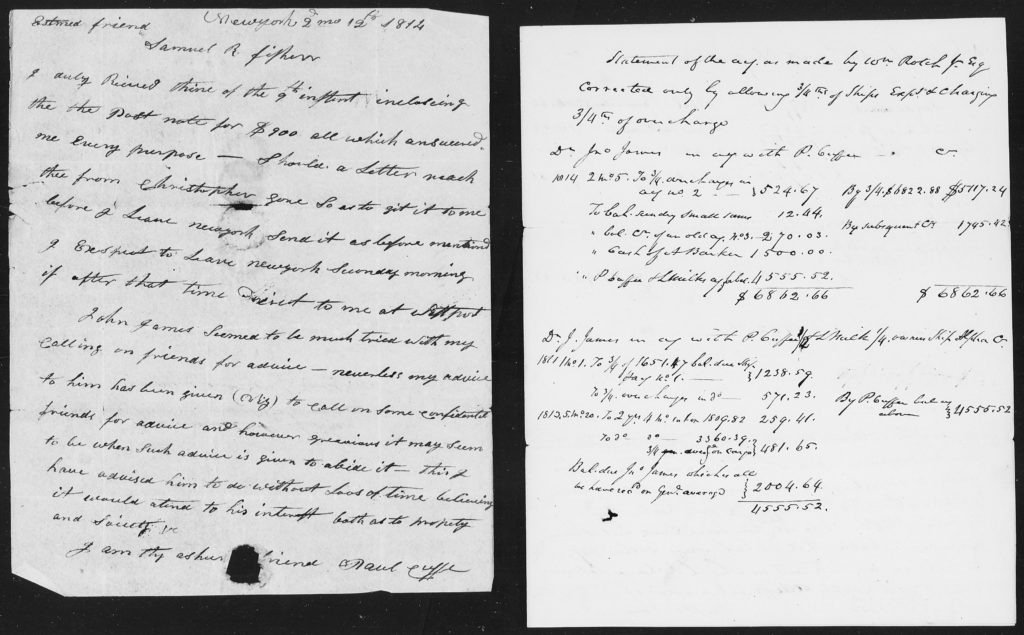 Newyork 2d mo 12th 1814
Estmed friend
Samuel R fisherr
I duly Recived thine of the 9th instant inclosing
the the Post note for $900 all which answered
me Every purpose — Should a Letter reach
thee from Christopher gone So as to git it to me
before I Leave newyork Send it as before mentiond
I Exspect to Leave newyork Secunday morning
if after that time Direct to me at Westport
John James Seemed to be much tried with my
Calling on friends for advice — neverless my advice
to him has been given (viz) to Call on Some Confidential
friends for advice and however greavious it may Seem
to be when Such advice is given to abide it — this I
have advised him to do without Loos of time believing
it would atend to his interest both as to propety
and Society
I am thy friend Paul Cuffe
Statement of the a/c as made by Wm Rotch Jr Esq
Corrected only by allowing 3/4ths of Ships Expd & Charging
3/4ths of overcharge
Dr Jno James in a/c with P. Cuffee Cr
1814 2 mo 5. To 3/4 overcharges in
a/c no 2 — } 524.67 By 3/4 $6822.88 $5117.24
To bal. sundry small sums 12.44. By subsequent Cr 1745.42
" bal. Cr. of an old a/c. no 3. 270.03.
" Cash of A Barker 1500.00.
" P Cuffee & L Milks a/c for bal. 4555.52.
$6862.66 $6862.66
Dr J. James in a/c with P Cuffee & L Milk 1/4 owners Ship Cr
1811 1 mo 1. To 3/4 of 1651.47 bal. due
a/c no 1. — } 1238.59
To 3/4 overcharges in do — 571.23. By P. Cuffee bal a/c
above } 4555.52
1813. 5. mo 20. To 2 yrs 4 mo int on 1809.82 259.41.
To do do — 3360.39.
} 481.65.
Bal. due Jno James which is all
we have recd on Genl average } 2004.64.
4555.52.